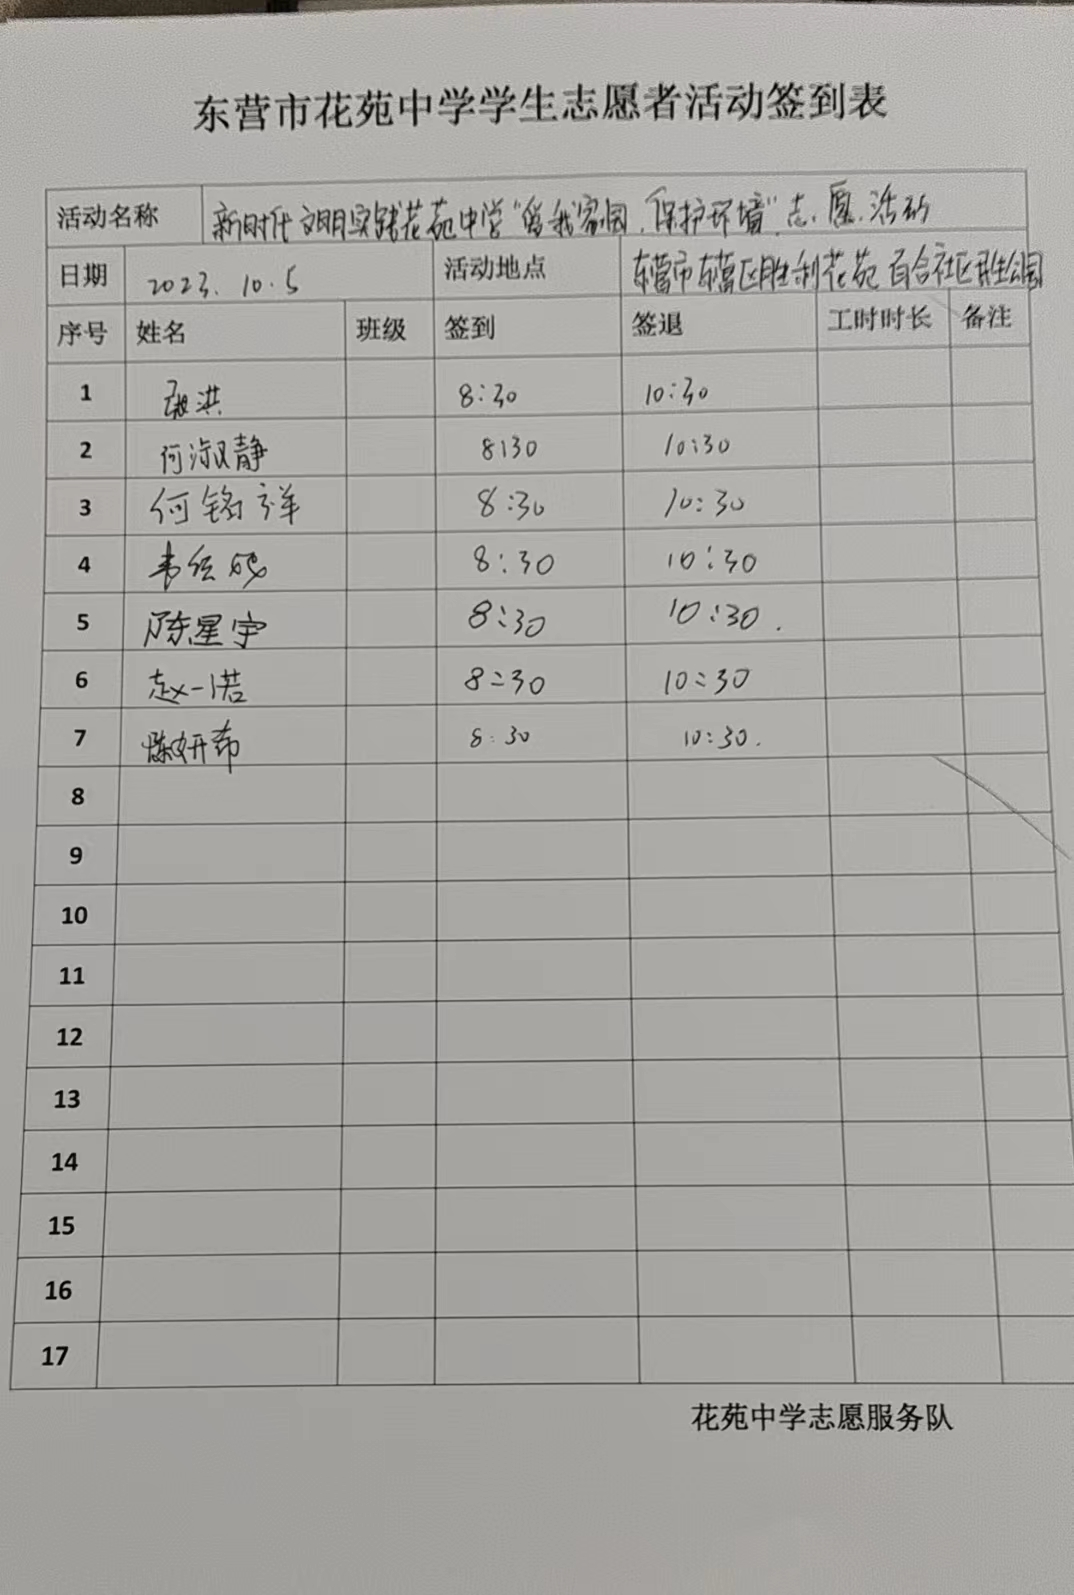 东营市花苑中学学生志愿者活动签到表
活动名称 新时代文明实践花苑中学“爱我家园，保护环境”志愿活动
日期 2023.10.5 活动地点 东营市东营区胜利花苑百合社区
序号 姓名 班级 签到 签退 工时时长 备注
1 8:30 10:30
2 何淑静 8:30 10:30
3 何铭洋 8:30 10:30
4 8:30 10:30
5 陈星宇 8:30 10:30.
6 赵一诺 8:30 10:30
7 陈妍希 8:30 10:30.
8
9
10
11
12
13
14
15
16
17
花苑中学志愿服务队